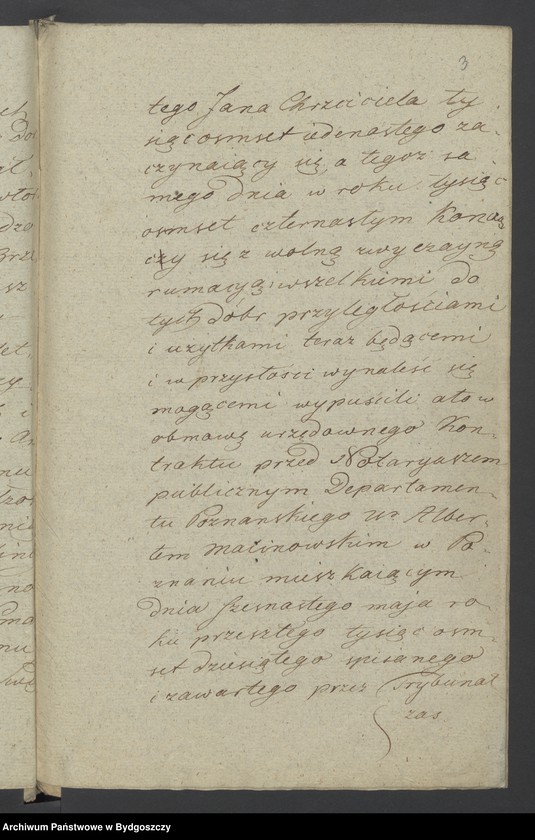 3
tego Jana Chrzciciela ty
siąc osmset iedenastego za-
czynaiący się a tegoż sa-
mego dnia w roku tysiąc
osmset czternastym Kończą
czy się z wolną zwyczayną
rumacyą, wszelkiemi do
tych dóbr przyległościami
i użytkami teraz będącemi
i w przyszłości wynaleść się
mogącemi wypuścili a to w
obmowę urzędownego Kon-
traktu przed Notaryuszem
publicznym Departamen-
tu Poznanskiego Ur Alber-
tem Malinowskim w Po-
znaniu mieszkaiącym
dnia szesnastego maja ro-
ku przeszłego tysiąc osm-
set dziesiątego spisanego
i zawartego przez Trybunał
zas
Archiwum Państwowe w Bydgoszczy